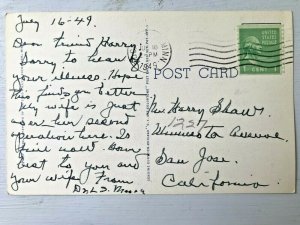 July 16-49.
Dear Friend Harry.
Sorry to hear of
your illness. Hope
this finds you better
My wife is just
over her second
operation here. Is
fine now. Our
best to you and
your wife. From
Dr. L. S.
POST CARD
Mr. Harry Shaw
1257
Minnesota Avenue.
San Jose.
California
PM
1949
MINN
UNITED STATES POSTAGE
1 CENT 1